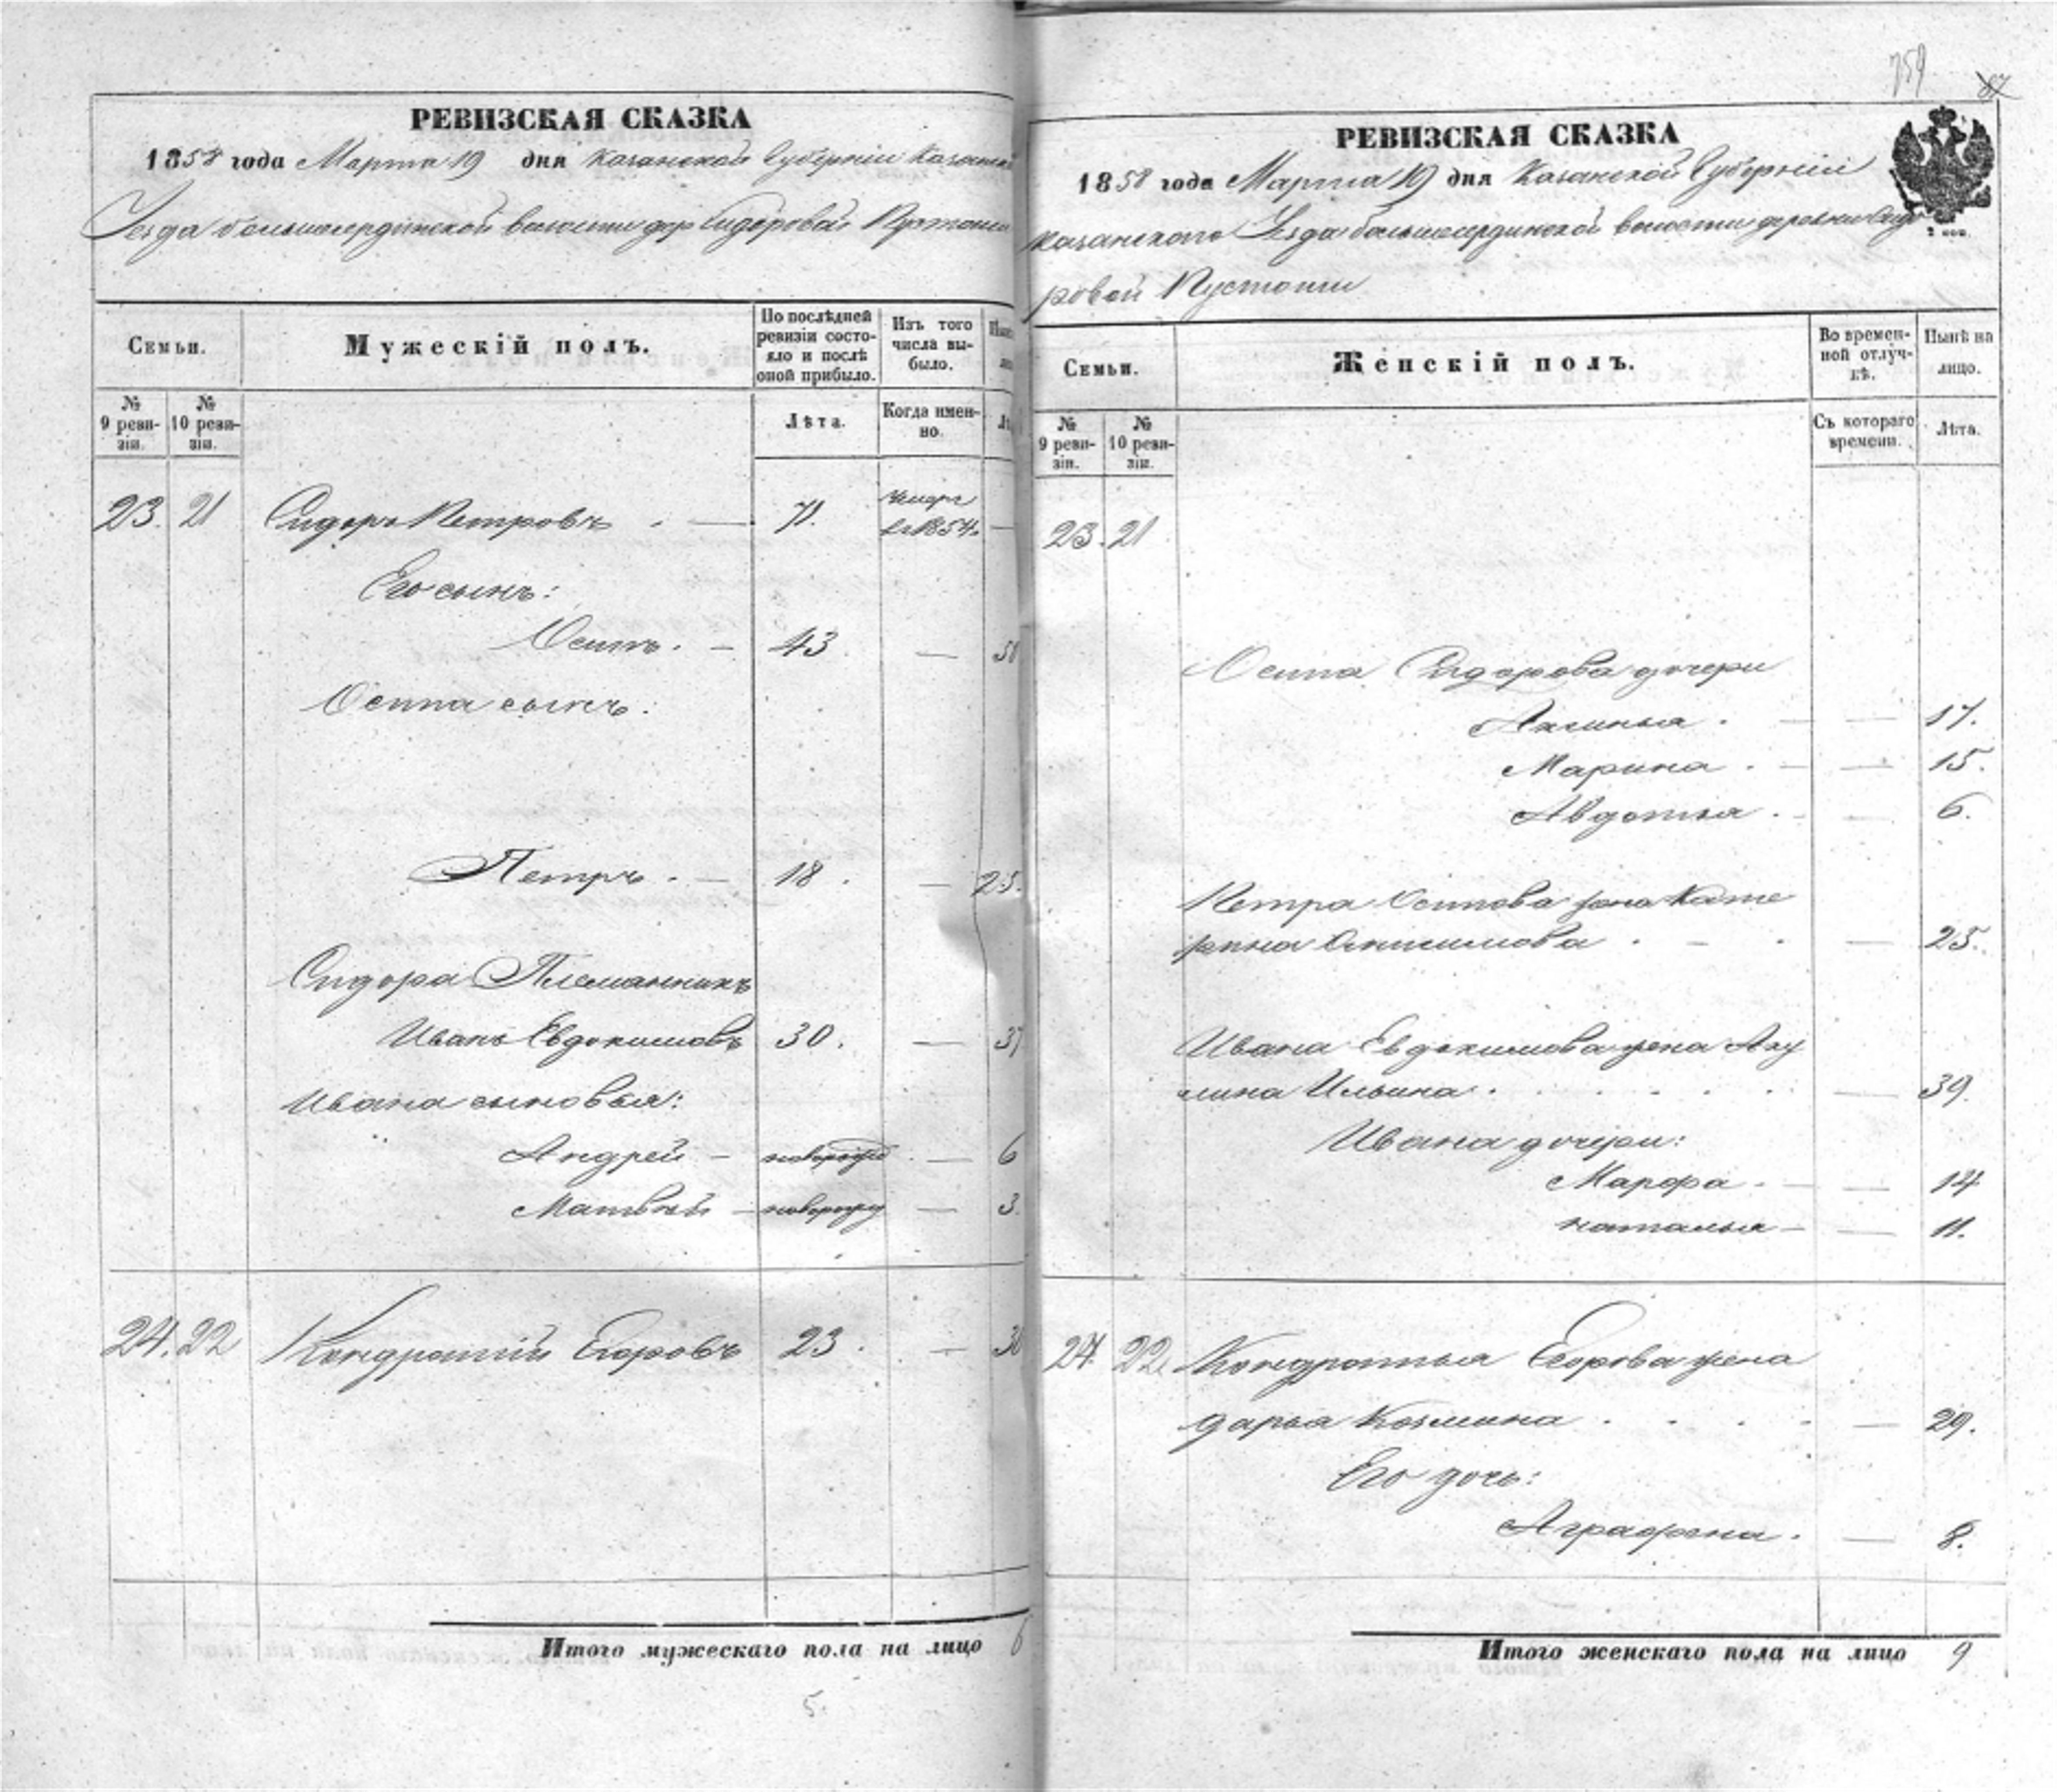 РЕВИЗСКАЯ СКАЗКА
1858 года Марта 19 дня Казанской Губерніи Казанска
Уезда большесердинской волости дер Сидоровой Пустоши
Семьи.
Мужескій полъ.
По послѣдней ревизіи состояло и послѣ оной прибыло.
Изъ того числа выбыло.
№ 9 ревизіи.
№ 10 ревизіи.
Лѣта.
Когда именно.
23. 21 Сидоръ Петровъ . — 71. умеръ в 1854. —
Его сынъ:
Осипъ. — 43 — 50
Осипа сынъ:
Петръ . — 18 . — 25.
Сидора Племянникъ
Иванъ Евдокимовъ 30. — 37
Ивана сыновья:
Андрей — новорожд — 6
Матвѣй — новорожд — 3.
24. 22 Кондратій Егоровъ 23 . — 30
Итого мужескаго пола на лицо 6
5.
759
87
РЕВИЗСКАЯ СКАЗКА
1858 года Марта 19 дня Казанской Губерніи
Казанского Уезда большесердинской волости деревни Сидо
ровой Пустоши
2 коп.
Семьи.
Женскій полъ.
Во временной отлучкѣ.
Нынѣ на лицо.
№ 9 ревизіи.
№ 10 ревизіи.
Съ котораго времени.
Лѣта.
23. 21
Осипа Сидорова дочери
Аксинья . — — 17.
Марина . — — 15.
Авдотья . — — 6.
Петра Осипова жена Кате
рина Анисимова . — . — 25.
Ивана Евдокимова жена Аку
лина Ильина . . . . . . — 39.
Ивана дочери:
Марфа . — — 14
Наталья — — 11.
24. 22. Кондратья Егорова жена
Дарья Козмина . . . . — 29.
Его дочь:
Аграфена . — 8.
Итого женскаго пола на лицо 9